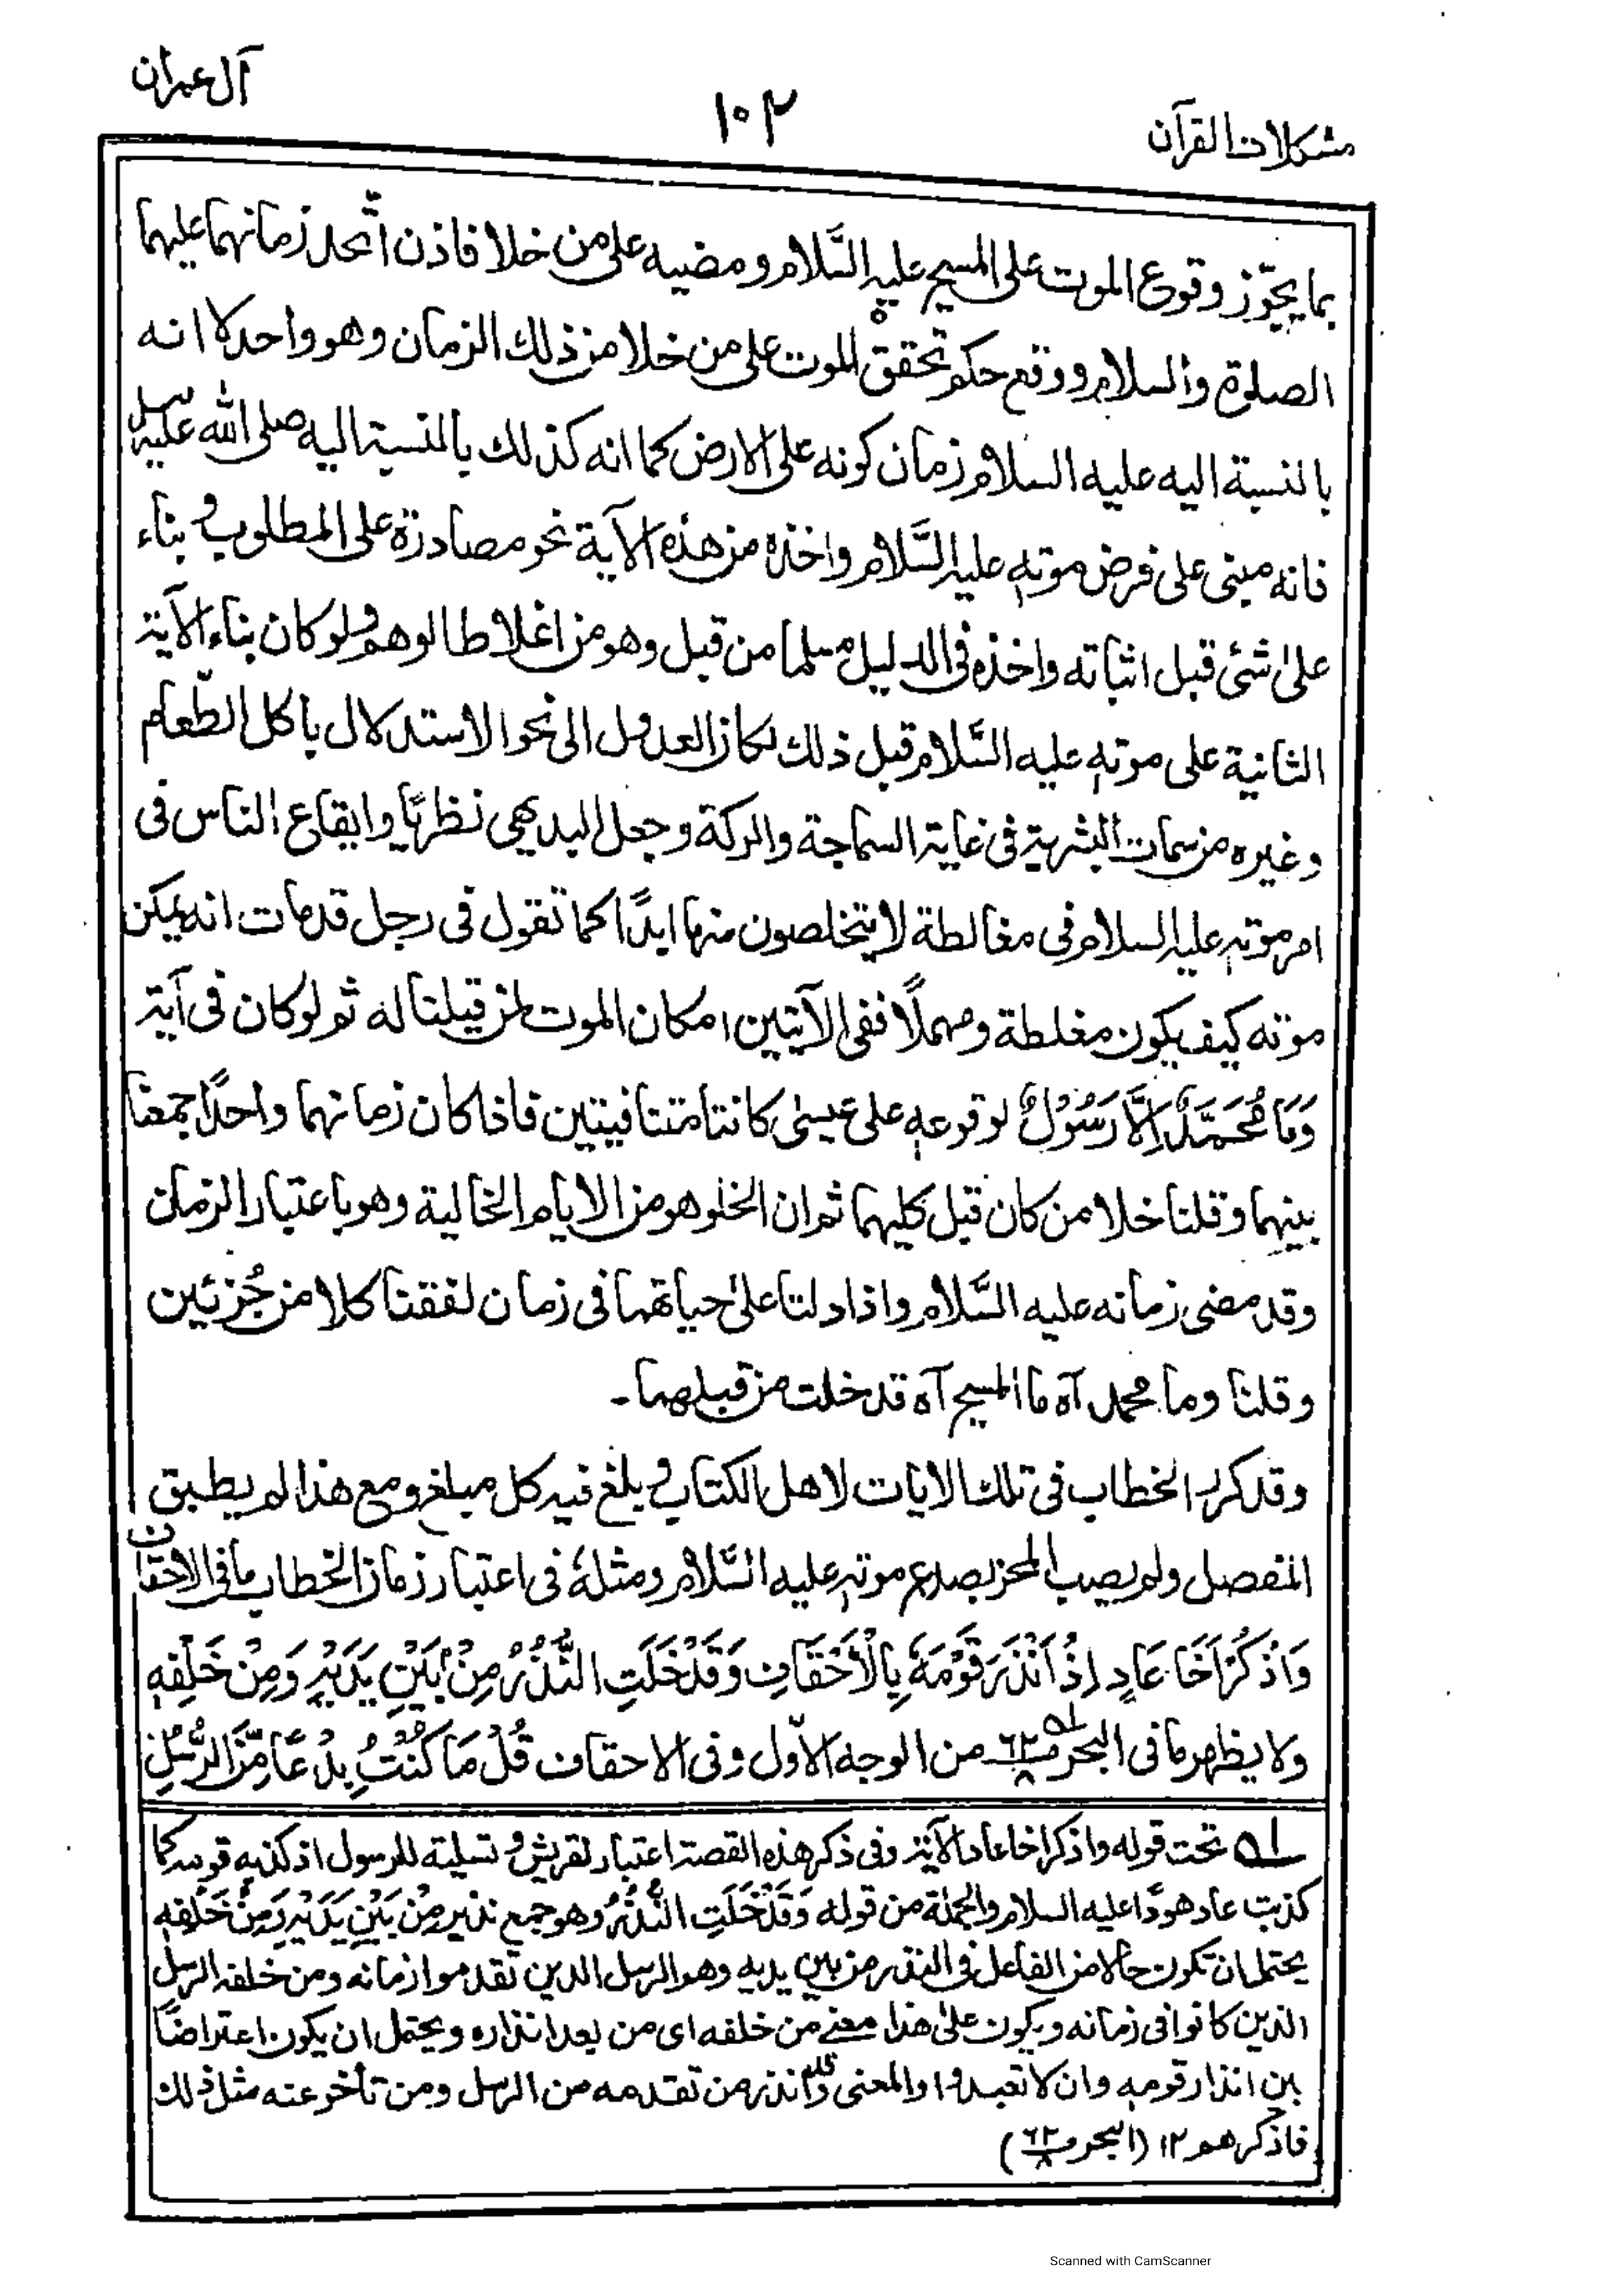 مشكلات القرآن
١٠٢
آل عمران
بما يجوّز وقوع الموت على المسيح عليه السَّلام ومضيه على من خلا فاذن اتّحد زمانهما عليهما
الصلوٰة والسلام ووقع حكم تحقق الموت على من خلا من ذلك الزمان وهو واحد لا انه
بالنسبة اليه عليه السلام زمان كونه على الارض كما انه كذلك بالنسبة اليه صلى الله عليه وسلم
فانه مبنى على فرض موته عليه السَّلام واخذه من هذه الآية نحو مصادرة على المطلوب و بناء
علىٰ شئ قبل اثباته واخذه فى الدليل مسلما من قبل وهو من اغلاط الوهم ولو كان بناء الآية
الثانية على موته عليه السَّلام قبل ذلك لكان العدول الى نحو الاستدلال باكل الطّعام
وغيره من سمات البشرية فى غاية السماجة والركة وجعل البديهى نظريًا وايقاع الناس فى
امر موته عليه السلام فى مغالطة لا يتخلصون منها ابدًا كما تقول فى رجل قد مات انه يمكن
موته كيف يكون مغلطة ومهملًا ففى الآيتين امكان الموت لمن قيلتا له ثم لو كان فى آية
وَمَا مُحَمَّدٌ اِلَّا رَسُوْلٌ لوقوعه على عيسىٰ كانتا متنافيتين فاذا كان زمانهما واحدًا جمعنا
بينهما وقلنا خلا من كان قبل كليهما ثم ان الخلو هو من الايام الخالية وهو باعتبار الزمان
وقد مضى زمانه عليه السَّلام واذا دلتا علىٰ حياتهما فى زمان لفقنا كلا من جُزئين
وقلنا وما محمد آه ما المسيح آه قد خلت من قبلهما۔
وقد كرر الخطاب فى تلك الايات لاهل الكتاب و بلغ فيه كل مبلغ ومع هذا لم يطبق
المفصل ولم يصب المحز بصدع موته عليه السَّلام ومثلهٗ فى اعتبار زمان الخطاب ما فى الاحقاف
وَاذْكُرْ اَخَا عَادٍ اِذْ اَنْذَرَ قَوْمَهٗ بِالْاَحْقَافِ وَقَدْ خَلَتِ النُّذُرُ مِنْۢ بَيْنِ يَدَيْهِ وَمِنْ خَلْفِهٖ
ولا يظهر ما فى البحر ٦٢/٨ ۵۱ من الوجه الاوّل وفى الاحقاف قُلْ مَا كُنْتُ بِدْعًا مِّنَ الرُّسُلِ
۵۱ تحت قوله واذكر اخا عاد الآية وفى ذكر هذه القصة اعتبار لقريش و تسلية للرسول اذ كذبه قومه كما
كذبت عاد هودًا عليه السلام والجملة من قوله وَقَدْ خَلَتِ النُّذُرُ وهو جمع نذير مِنْۢ بَيْنِ يَدَيْهِ وَمِنْ خَلْفِهٖ
يحتمل ان تكون حالا من الفاعل فى النذر من بين يديه وهو الرسل الذين تقدموا زمانه ومن خلفه الرسل
الذين كانوا فى زمانه ويكون علىٰ هذا معنے من خلفه اى من بعد انذاره ويحتمل ان يكون اعتراضًا
بين انذار قومه وان لا تعبدوا والمعنى وقد انذر من تقدمه من الرسل ومن تأخر عنه مثل ذلك
فاذكرهم ۱۲ (البحر ٦٢/٨)
Scanned with CamScanner